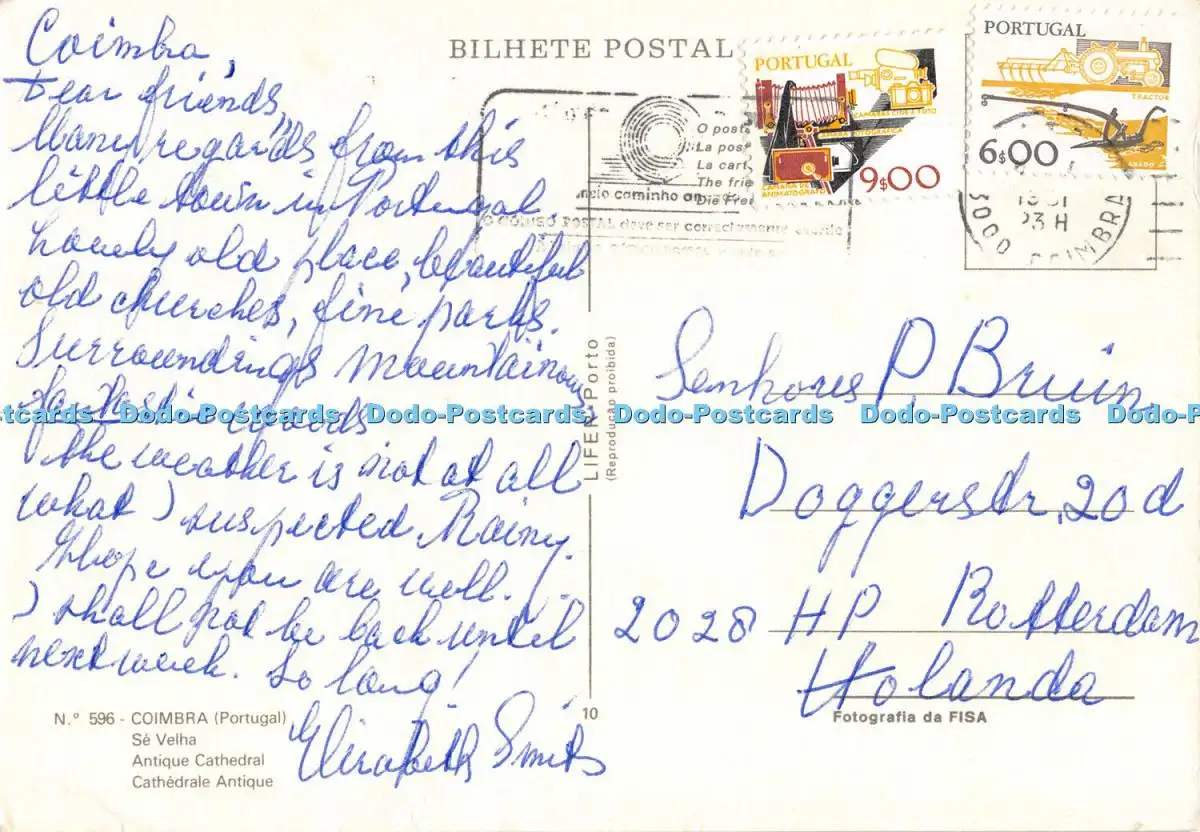 Coimbra,
Dear friends,
Many regards from this
little town in Portugal.
Lovely old place, beautiful
old churches, fine parks.
Surroundings mountainous
fantastic woods
The weather is not at all
what I suspected. Rainy.
I hope you are well.
I shall not be back until
next week. So long!
Elizabeth Smits
Nº 596 - COIMBRA (Portugal)
Sé Velha
Antique Cathedral
Cathédrale Antique
BILHETE POSTAL
O posta
La pos
La cart
The frie
Die Fre
meio caminho an
O CÓDIGO POSTAL deve ser correctamente escrito
PORTUGAL
CÂMARAS CINE E FOTO
FOTOGRÁFICA
CÂMARA DE
ANIMATÓGRAFO
9$00
PORTUGAL
TRACTOR
ARADO
6$00
23 H
3000 COIMBRA
LIFER Porto
(Reprodução proibida)
10
Senhores P. Bruin
Doggerstr. 20d
2028 HP Rotterdam
Holanda
Fotografia da FISA
ostcards Dodo-Postcards Dodo-Postcards Dodo-Postcards Dodo-Postcards Do